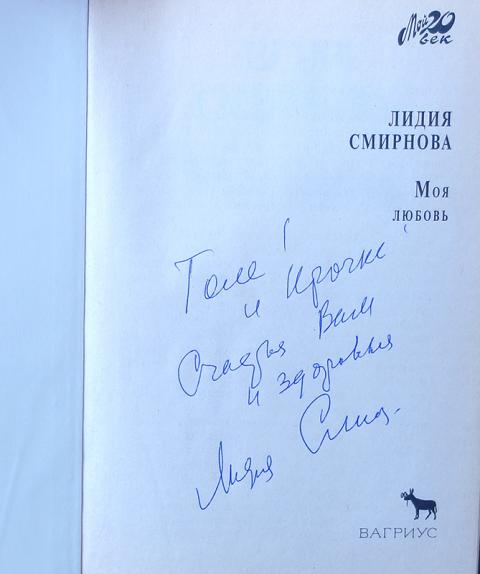 Мой 20
век
ЛИДИЯ
СМИРНОВА
Моя
любовь
Толе!
и Ирочке
Счастья Вам
и здоровья
Лидия Смир.
ВАГРИУС